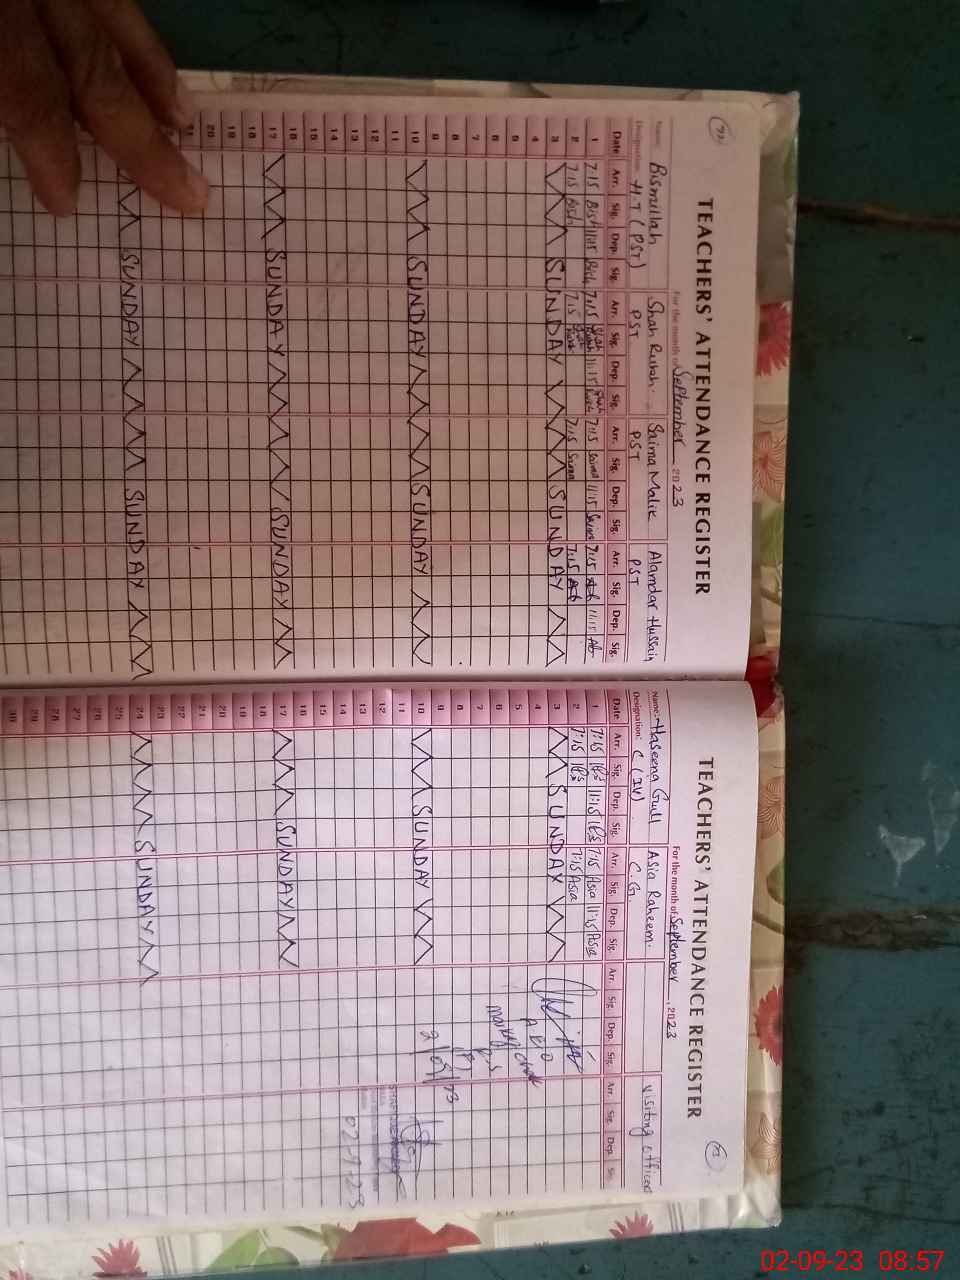 TEACHERS' ATTENDANCE REGISTER
For the month of September 2023
Name: Bismillah Shah Rukh. Saima Malik Alamdar Hussain
Designation: H.T (PST) PST PST PST
Date Arr. Sig. Dep. Sig. Arr. Sig. Dep. Sig. Arr. Sig. Dep. Sig. Arr. Sig. Dep. Sig.
1 7:15 11:15 7:15 Shah Rukh 11:15 Shah Rukh 7:15 Saima 11:15 Saima 7:15 11:15
2 7:15 7:15 Shah Rukh 7:15 Saima 7:15
3 SUNDAY SUNDAY
4
5
6
7
8
9
10 SUNDAY SUNDAY
11
12
13
14
15
16
17 SUNDAY SUNDAY
18
19
20
21
SUNDAY SUNDAY
TEACHERS' ATTENDANCE REGISTER
For the month of September, 2023
Name: Haseena Gull Asia Raheem. Visiting officers
Designation: C (IV) C.G.
Date Arr. Sig. Dep. Sig. Arr. Sig. Dep. Sig. Arr. Sig. Dep. Sig. Arr. Sig. Dep. Sig.
1 7:15 11:15 7:15 Asia 11:15 Asia
2 7:15 7:15 Asia
3 SUNDAY
4
5
6
7
8
9
10 SUNDAY
11
12
13
14
15
16
17 SUNDAY
18
19
20
21
22
23
24 SUNDAY
25
26
27
28
29
30
02-9-23
02-09-23 08.57